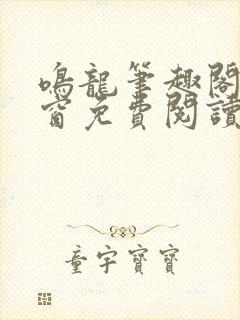 鳴龍筆趣閣
窗免費閱讀
童宇寶寶